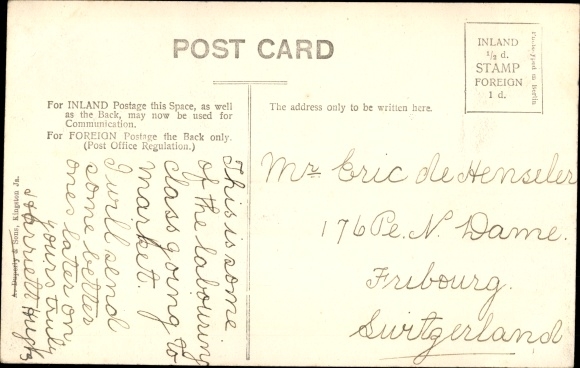 POST CARD
INLAND
½ d.
STAMP
FOREIGN
1 d.
For INLAND Postage this Space, as well
as the Back, may now be used for
Communication.
For FOREIGN Postage the Back only.
(Post Office Regulation.)
The address only to be written here.
This is some
of the labouring
class going to
market.
I will send
some better
ones later on
yours truly
Harriett
Mr Eric de Henseler
176 Pe. N. Dame.
Fribourg.
Switzerland
& Sons, Kingston Ja.